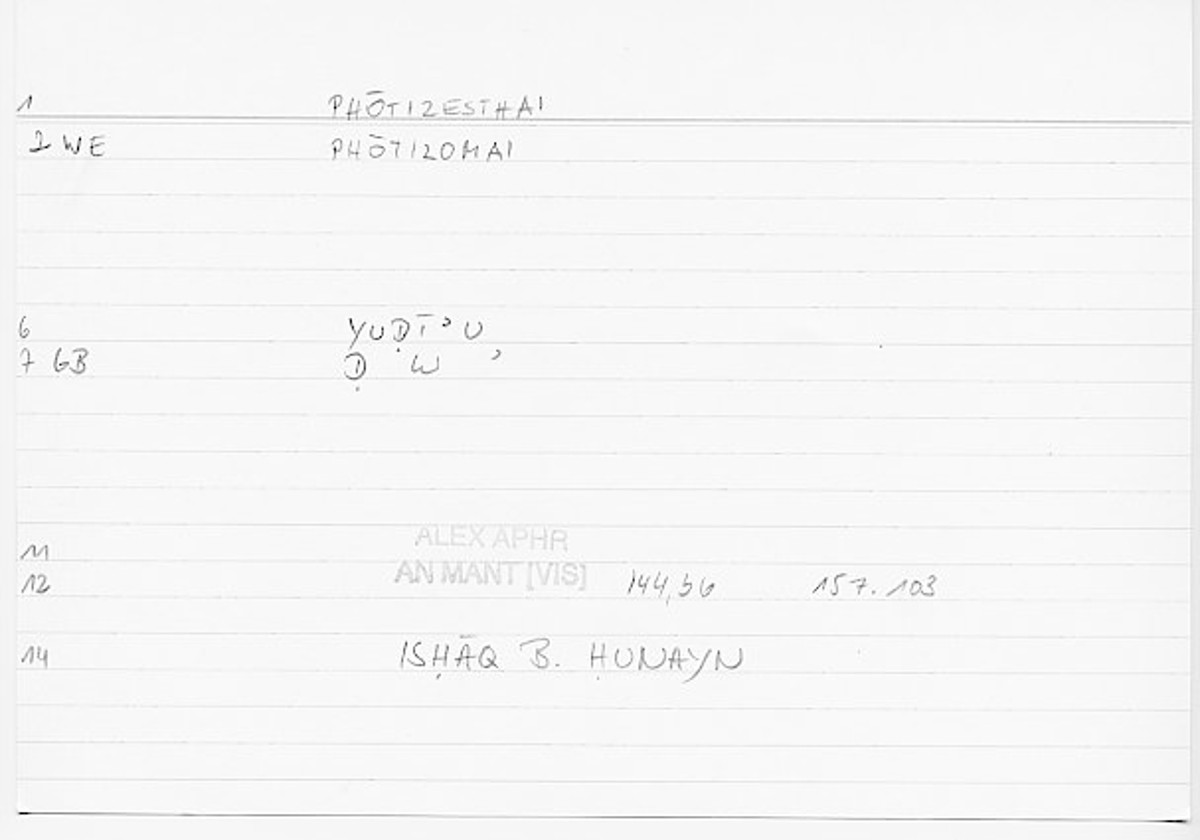 1 PHŌTIZESTHAI
2 WE PHŌTIZOMAI
6 YUḌĪʾU
7 GB Ḍ W ʾ
11 ALEX APHR
12 AN MANT [VIS] 144,36 157.103
14 ISḤĀQ B. ḤUNAYN